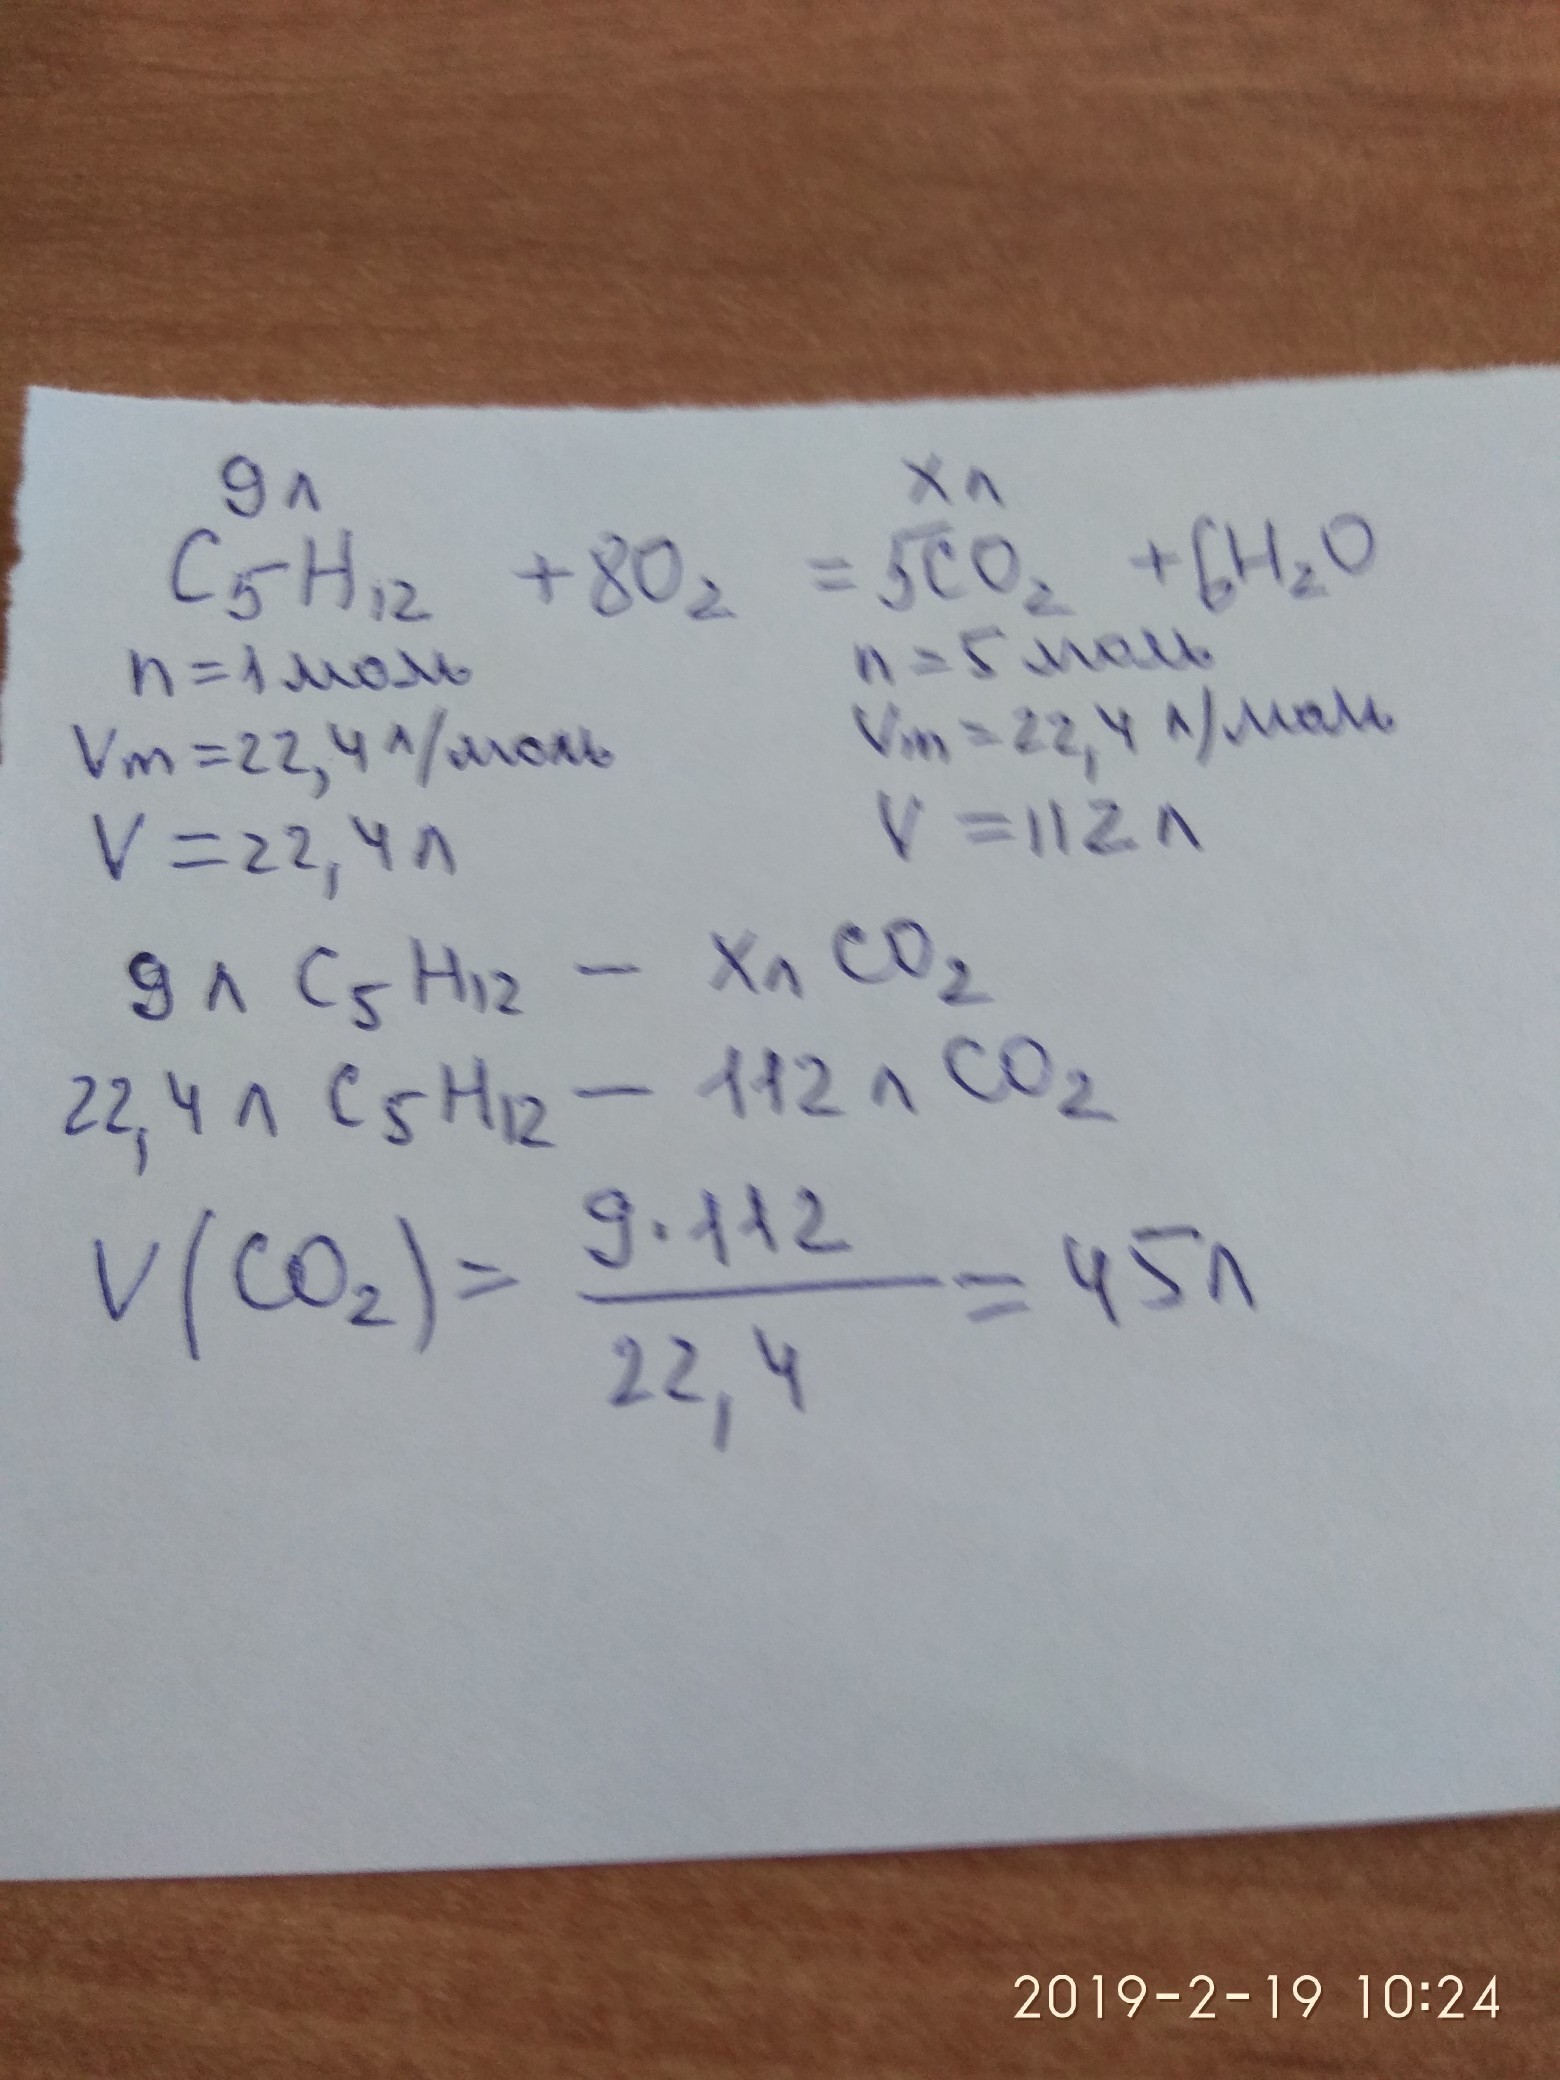 9л xл
C₅H₁₂ + 8O₂ = 5CO₂ + 6H₂O
n = 1 моль n = 5 моль
Vm = 22,4 л/моль Vm = 22,4 л/моль
V = 22,4 л V = 112 л
9 л C₅H₁₂ – xл CO₂
22,4 л C₅H₁₂ – 112 л CO₂
V(CO₂) = 9·112 / 22,4 = 45л
2019-2-19 10:24